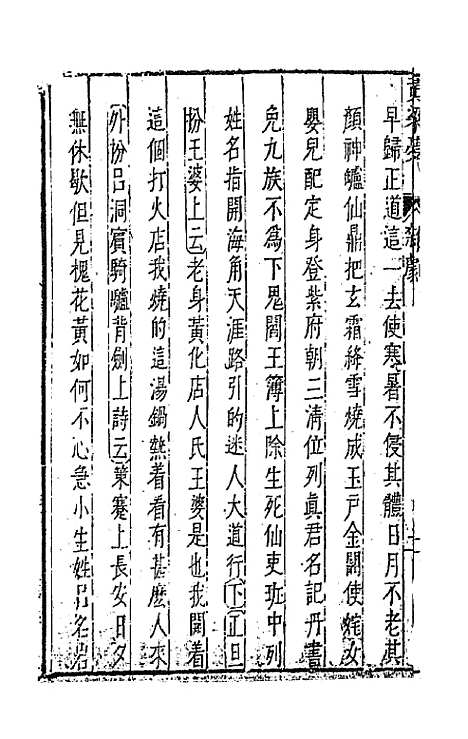 早歸正道這一去使寒暑不侵其體日月不老其
顏神爐仙鼎把玄霜絳雪燒成玉戶金關使姹女
嬰兒配定身登紫府朝三清位列眞君名記丹書
免九族不爲下鬼閻王簿上除生死仙吏班中列
姓名指開海角天涯路引的迷人大道行下正旦
扮王婆上云老身黃化店人氏王婆是也我開着
這個打火店我燒的這湯鍋熱着看有甚麽人來
外扮呂洞賓騎驢背劍上詩云策蹇上長安日夕
無休歇但見槐花黃如何不心急小生姓呂名岩